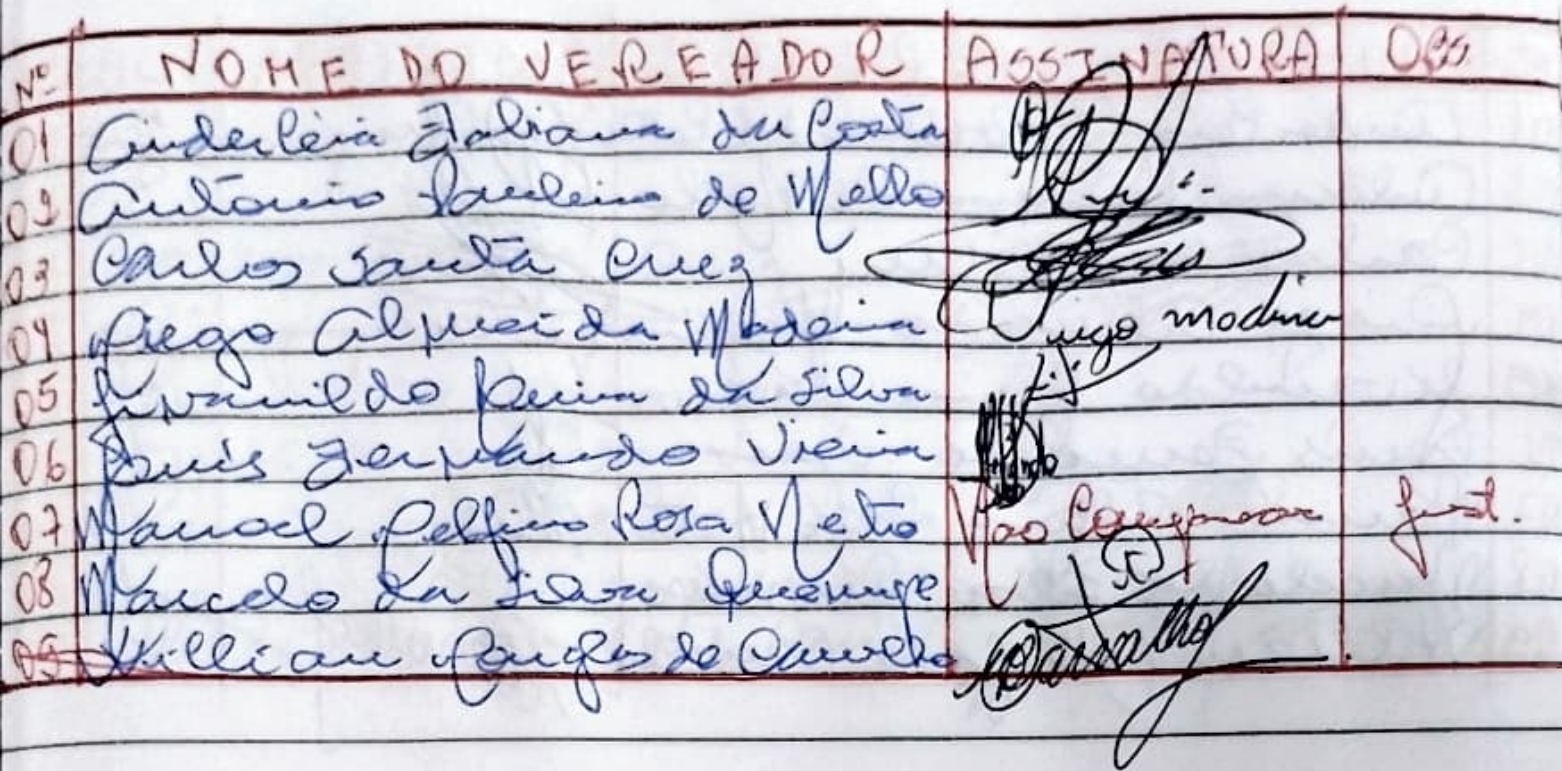 Nº NOME DO VEREADOR ASSINATURA OBS
01 Cinderleia Fabiana da Costa
02 Antônio Paulino de Mello
03 Carlos Santa Cruz
04 Diego Almeida Madeira Diego Madeira
05 Jivanildo da Silva
06 Luis Fernando Vieira
07 Manoel Delfino Rosa Neto Não Compareceu Just.
08 Marcelo da Silva
09 Willian de Carvalho Carvalho